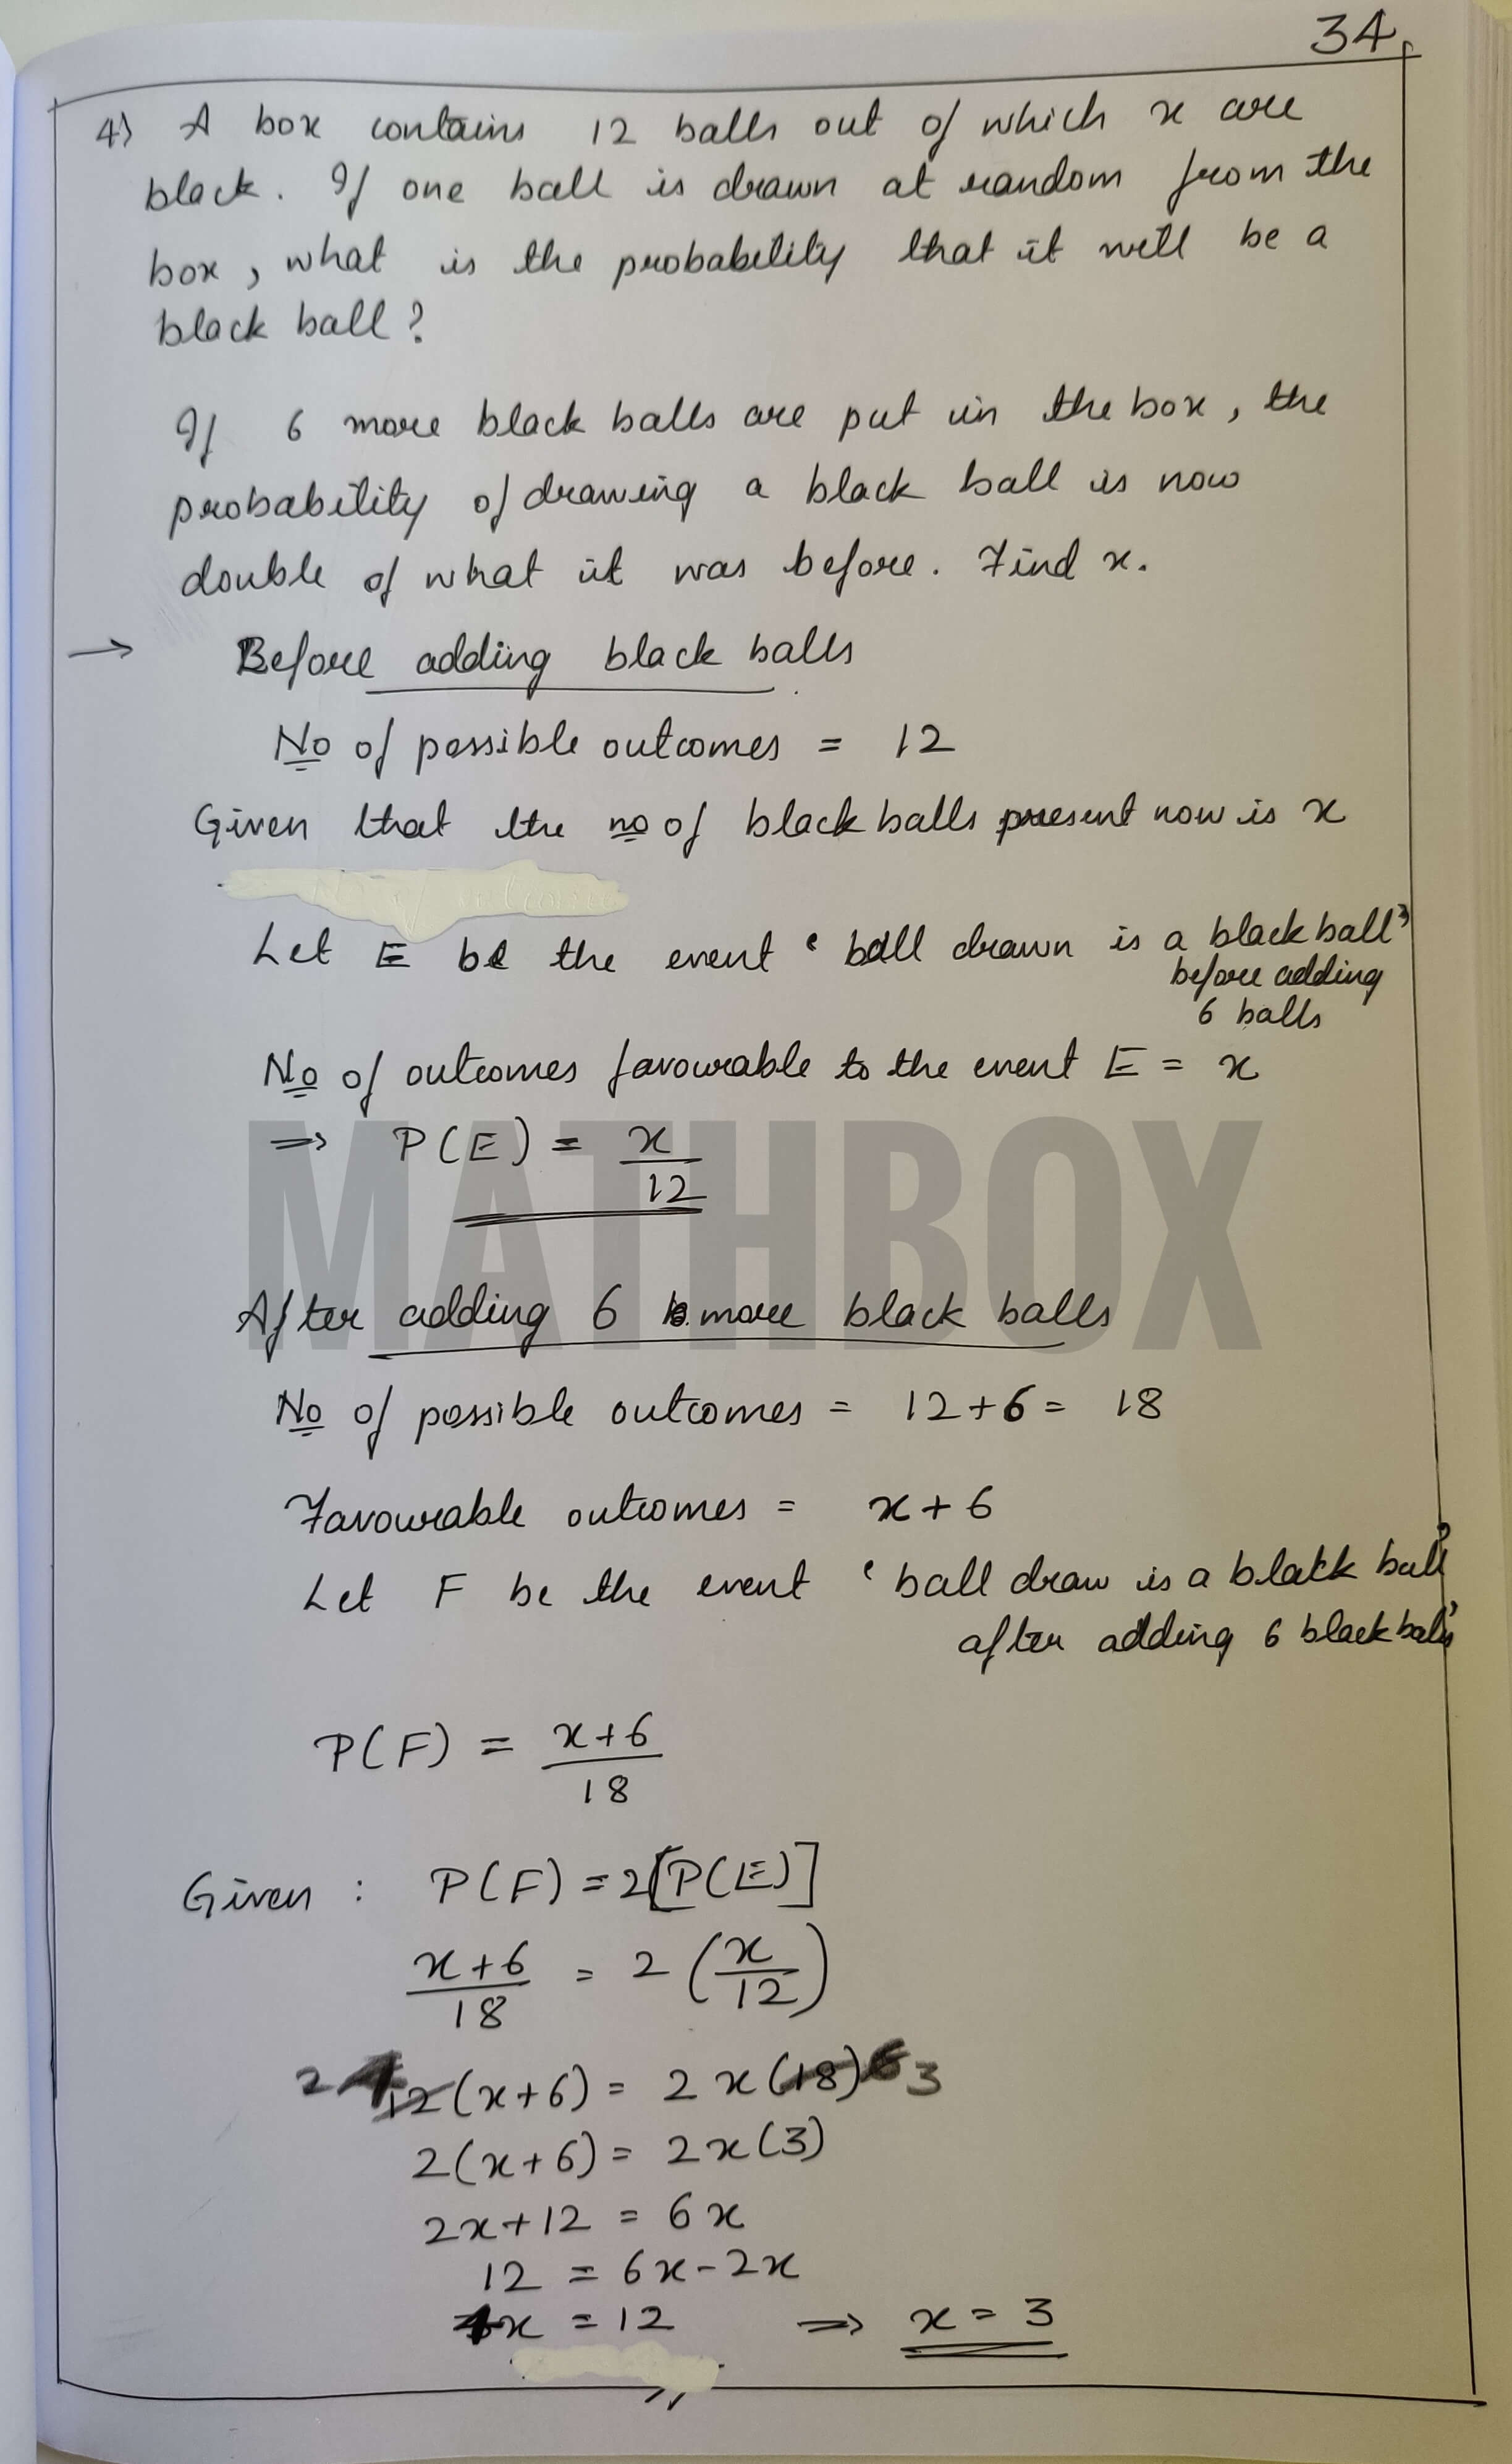 34
4) A box contains 12 balls out of which x are
black. If one ball is drawn at random from the
box, what is the probability that it will be a
black ball?
If 6 more black balls are put in the box, the
probability of drawing a black ball is now
double of what it was before. Find x.
→ Before adding black balls
No of possible outcomes = 12
Given that the no of black balls present now is x
Let E be the event ‘ball drawn is a black ball’
before adding
6 balls
No of outcomes favourable to the event E = x
⇒ P(E) = x/12
MATHBOX
After adding 6 more black balls
No of possible outcomes = 12+6 = 18
Favourable outcomes = x+6
Let F be the event ‘ball draw is a black ball’
after adding 6 black balls’
P(F) = x+6/18
Given : P(F) = 2[P(E)]
x+6/18 = 2(x/12)
2 12(x+6) = 2x(18) 6 3
2(x+6) = 2x(3)
2x+12 = 6x
12 = 6x-2x
4x = 12 ⇒ x = 3